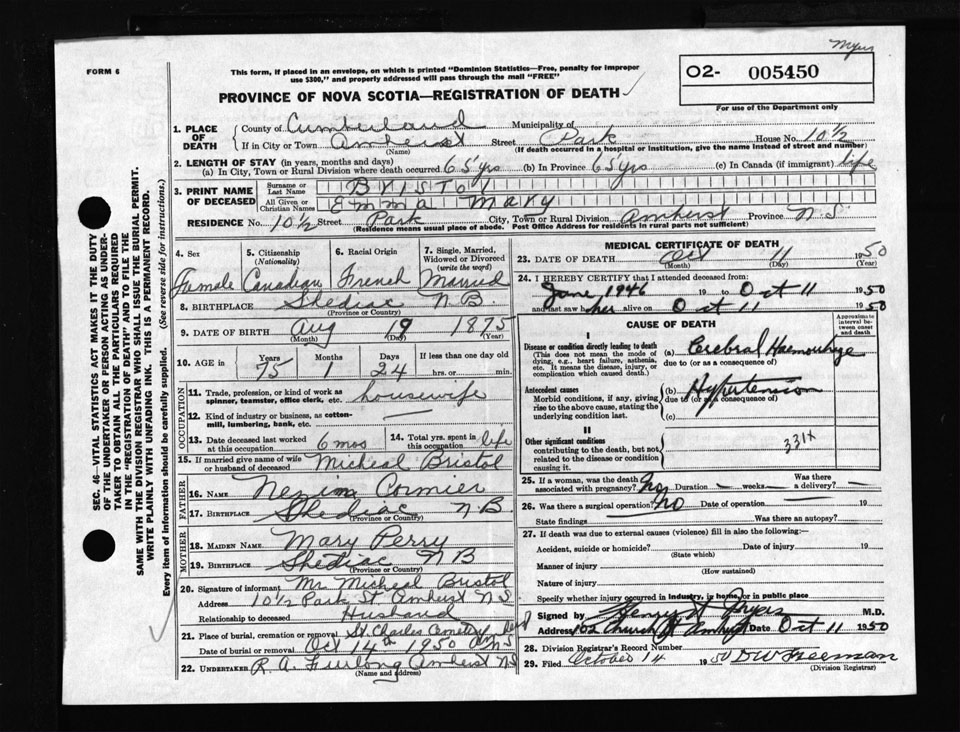 Myers
FORM 6
This form, if placed in an envelope, on which is printed "Dominion Statistics—Free, penalty for improper
use $300," and properly addressed will pass through the mail "FREE"
02- 005450
For use of the Department only
PROVINCE OF NOVA SCOTIA—REGISTRATION OF DEATH
1. PLACE OF DEATH County of Cumberland Municipality of
If in City or Town Amherst Street Park House No. 10½
(Name) (If death occurred in a hospital or institution, give the name instead of street and number)
2. LENGTH OF STAY (in years, months and days)
(a) In City, Town or Rural Division where death occurred 65 yrs (b) In Province 65 yrs (c) In Canada (if immigrant) life
3. PRINT NAME OF DECEASED Surname or Last Name BRISTOL
All Given or Christian Names EMMA MARY
RESIDENCE No. 10½ Street Park City, Town or Rural Division Amherst Province N.S.
(Residence means usual place of abode. Post Office Address for residents in rural parts not sufficient)
4. Sex 5. Citizenship (Nationality) 6. Racial Origin 7. Single, Married, Widowed or Divorced (write the word)
Female Canadian French Married
8. BIRTHPLACE Shediac N.B.
(Province or Country)
9. DATE OF BIRTH Aug 19 1875
(Month) (Day) (Year)
10. AGE in Years Months Days If less than one day old
75 1 24 hrs. or min.
OCCUPATION
11. Trade, profession, or kind of work as spinner, teamster, office clerk, etc. housewife
12. Kind of industry or business, as cotton-mill, lumbering, bank, etc. —
13. Date deceased last worked at this occupation 6 mos 14. Total yrs. spent in this occupation life
15. If married give name of wife or husband of deceased Micheal Bristol
FATHER
16. NAME Cormier
17. BIRTHPLACE Shediac N.B.
(Province or Country)
MOTHER
18. MAIDEN NAME Mary Perry
19. BIRTHPLACE Shediac N B
(Province or Country)
20. Signature of informant Mr Micheal Bristol
Address 10½ Park St Amherst N S
Relationship to deceased Husband
21. Place of burial, cremation or removal St. Charles Cemetery Amherst
Date of burial or removal Oct 14th 1950 NS
22. UNDERTAKER R. A. Furlong Amherst N S
(Name and address)
MEDICAL CERTIFICATE OF DEATH
23. DATE OF DEATH Oct 11 1950
(Month) (Day) (Year)
24. I HEREBY CERTIFY that I attended deceased from:
June 1946 19 to Oct 11 1950
and last saw her alive on Oct 11 1950
CAUSE OF DEATH
Approximate interval between onset and death
I
Disease or condition directly leading to death
(This does not mean the mode of dying, e.g., heart failure, asthenia, etc. It means the disease, injury, or complication which caused death.)
(a) Cerebral Haemorrhage
due to (or as a consequence of)
Antecedent causes
Morbid conditions, if any, giving rise to the above cause, stating the underlying condition last.
(b) Hypertension
due to (or as a consequence of)
(c)
II
Other significant conditions
contributing to the death, but not related to the disease or condition causing it.
331X
25. If a woman, was the death associated with pregnancy? No Duration — weeks — Was there a delivery? —
26. Was there a surgical operation? NO Date of operation — 19
State findings — Was there an autopsy?
27. If death was due to external causes (violence) fill in also the following:—
Accident, suicide or homicide? Date of injury 19
(State which)
Manner of injury
(How sustained)
Nature of injury
Specify whether injury occurred in industry, in home, or in public place
Signed by Henry W Myers M.D.
Address 102 Church St Amherst Date Oct 11 1950
28. Division Registrar's Record Number
29. Filed October 14 1950 D W Freeman
(Division Registrar)
SEC. 46—VITAL STATISTICS ACT MAKES IT THE DUTY
OF THE UNDERTAKER OR PERSON ACTING AS UNDER-
TAKER TO OBTAIN ALL THE PARTICULARS REQUIRED
IN THE "REGISTRATION OF DEATH" AND TO FILE THE
SAME WITH THE DIVISION REGISTRAR WHO SHALL ISSUE THE BURIAL PERMIT.
WRITE PLAINLY WITH UNFADING INK. THIS IS A PERMANENT RECORD.
Every item of information should be carefully supplied. (See reverse side for instructions.)